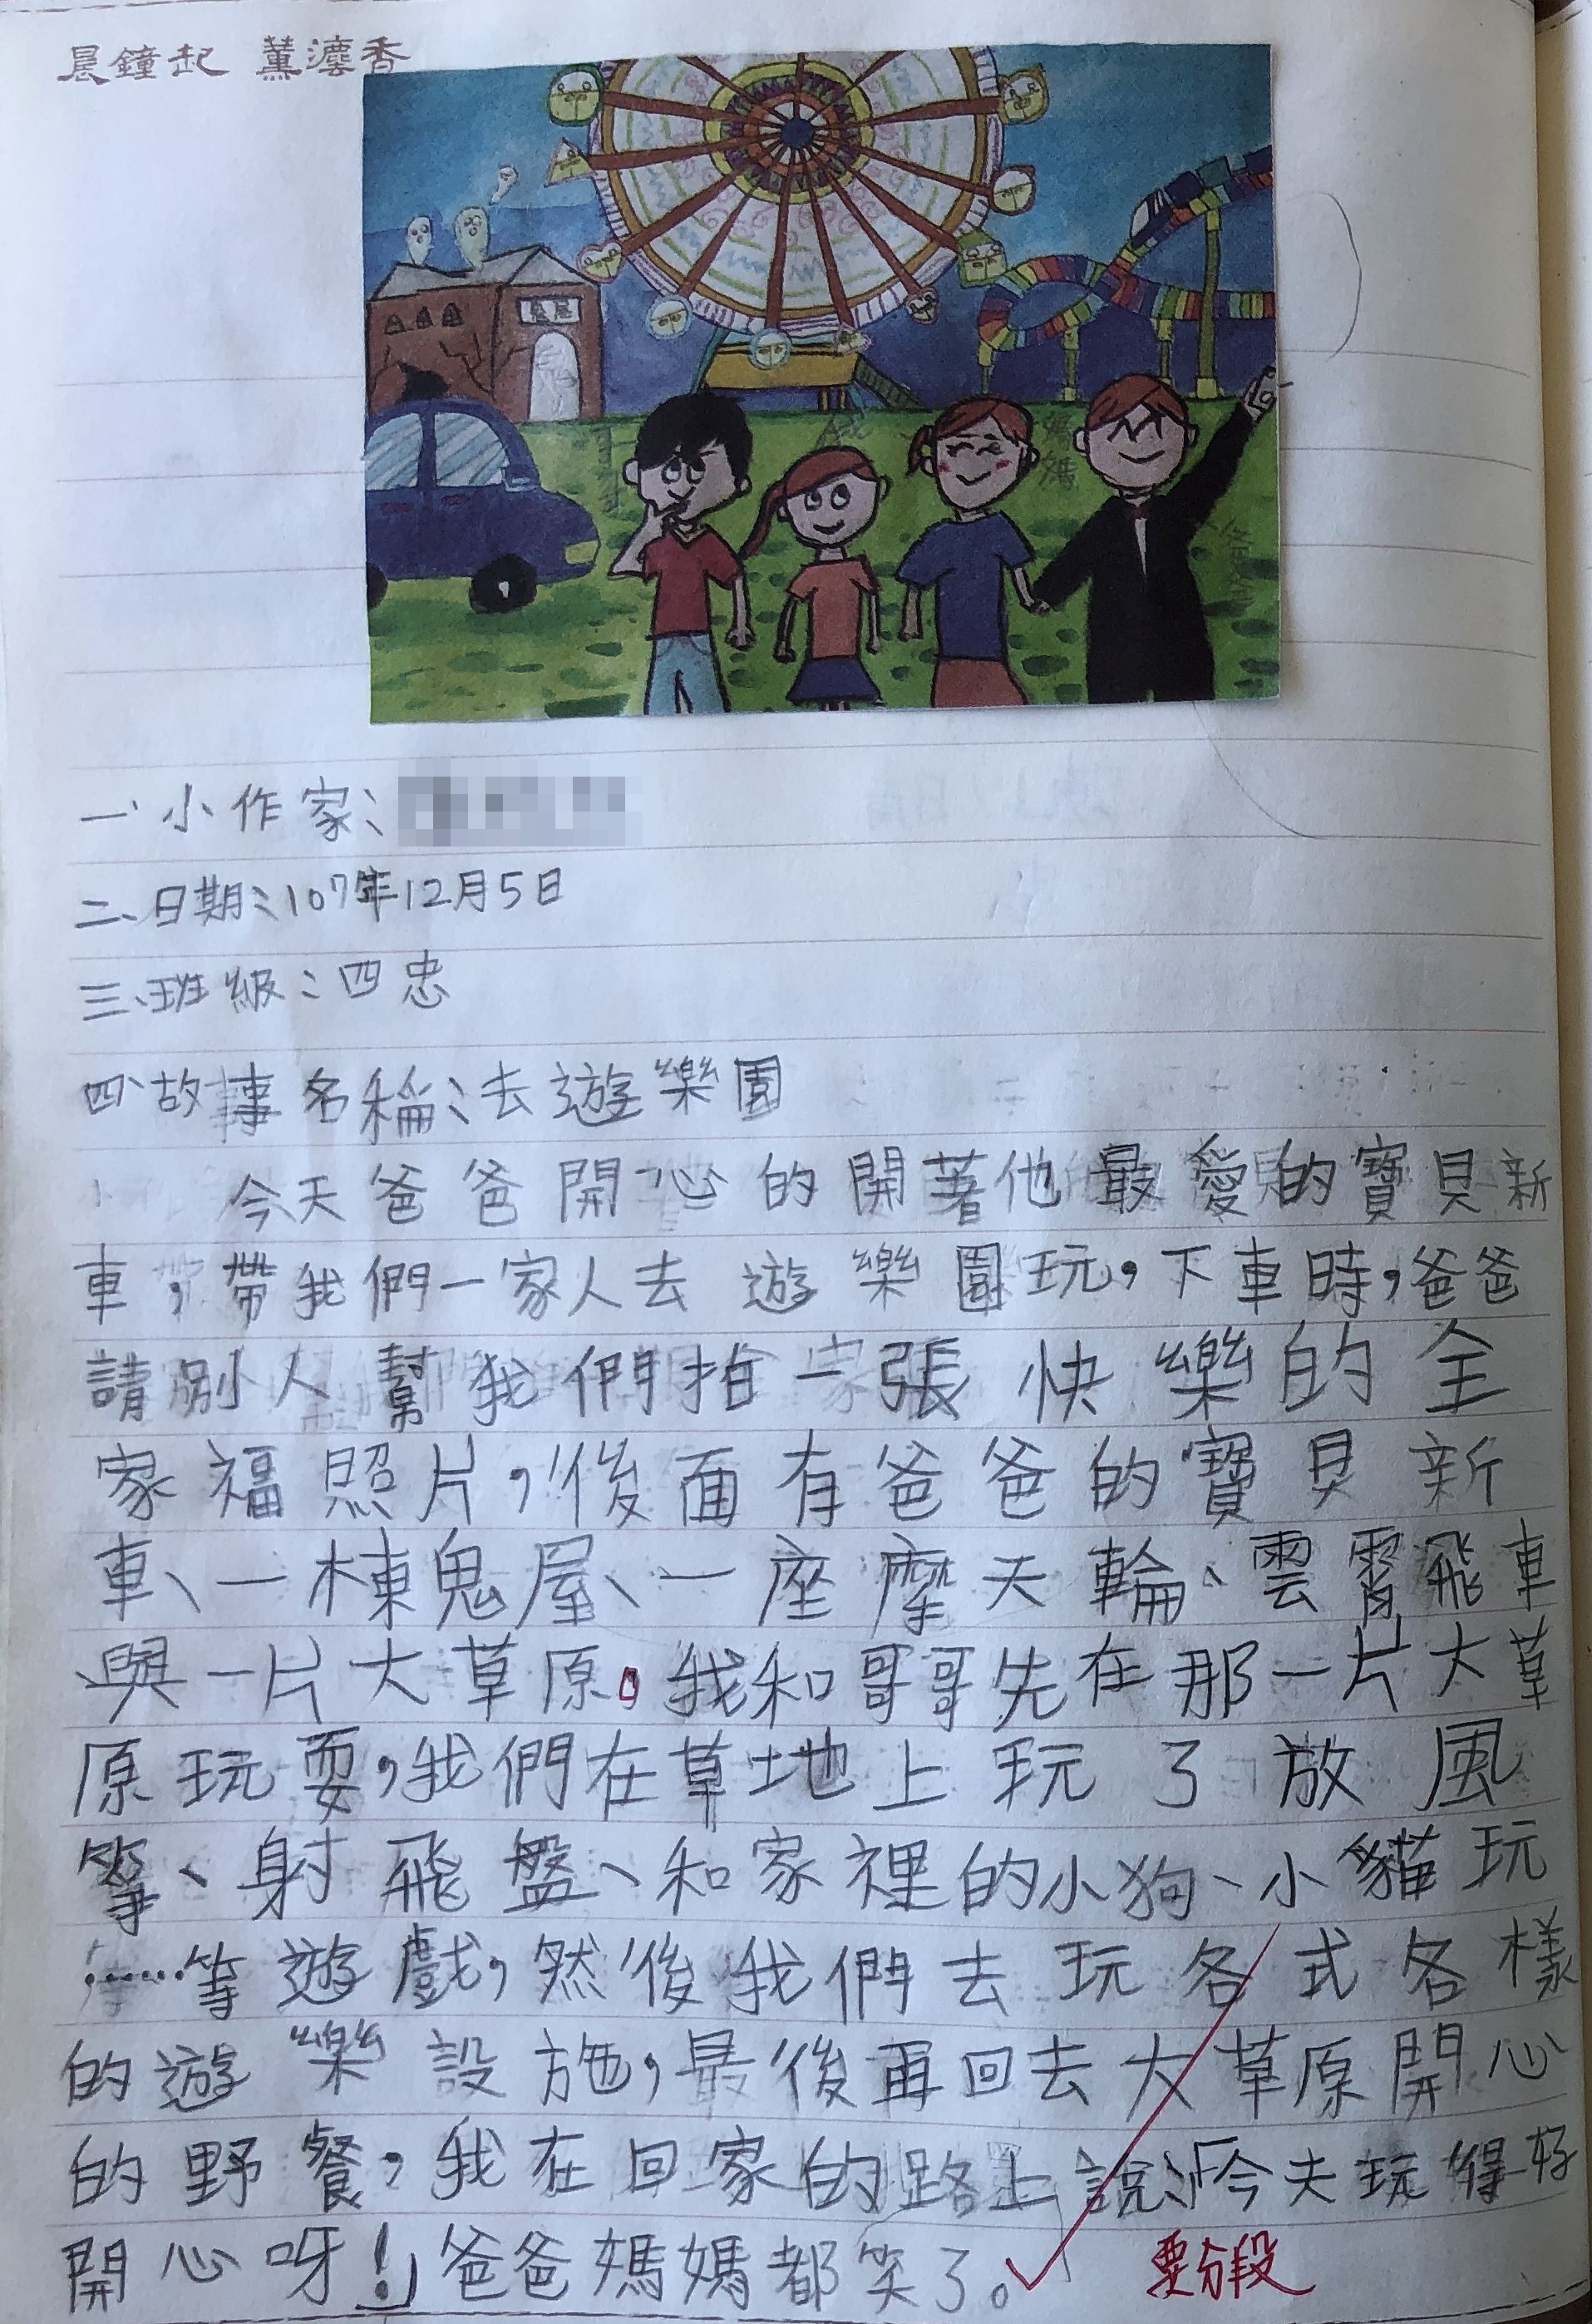 晨鐘起 薰瀀香
鬼屋
媽媽
爸爸
一、小作家:
二、日期:107年12月5日
三、班級:四忠
四、故事名稱:去遊樂園
今天爸爸開心的開著他最愛的寶貝新
車,帶我們一家人去遊樂園玩,下車時,爸爸
請別人幫我們拍一張快樂的全
家福照片,後面有爸爸的寶貝新
車、一棟鬼屋、一座摩天輪、雲霄飛車
與一片大草原。我和哥哥先在那一片大草
原玩耍,我們在草地上玩了放風
箏、射飛盤、和家裡的小狗、小貓玩
……等遊戲,然後我們去玩各式各樣
的遊樂設施,最後再回去大草原開心
的野餐,我在回家的路上說:「今天玩得好
開心呀!」爸爸媽媽都笑了。
要分段